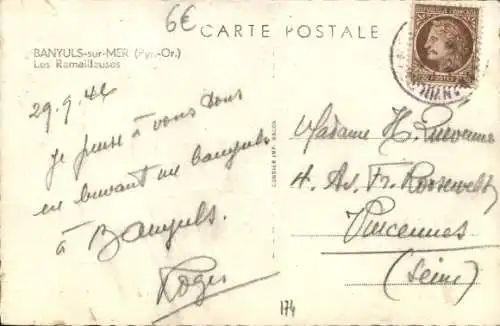 6€
CARTE POSTALE
BANYULS-sur-MER (Pyr.-Or.)
Les Ramailleuses
29.9.46
Je pense à vous tous
en buvant un banyuls
à Banyuls.
Roger
Madame H.
4. Av. Fr. Roosevelt
Vincennes
(Seine)
174